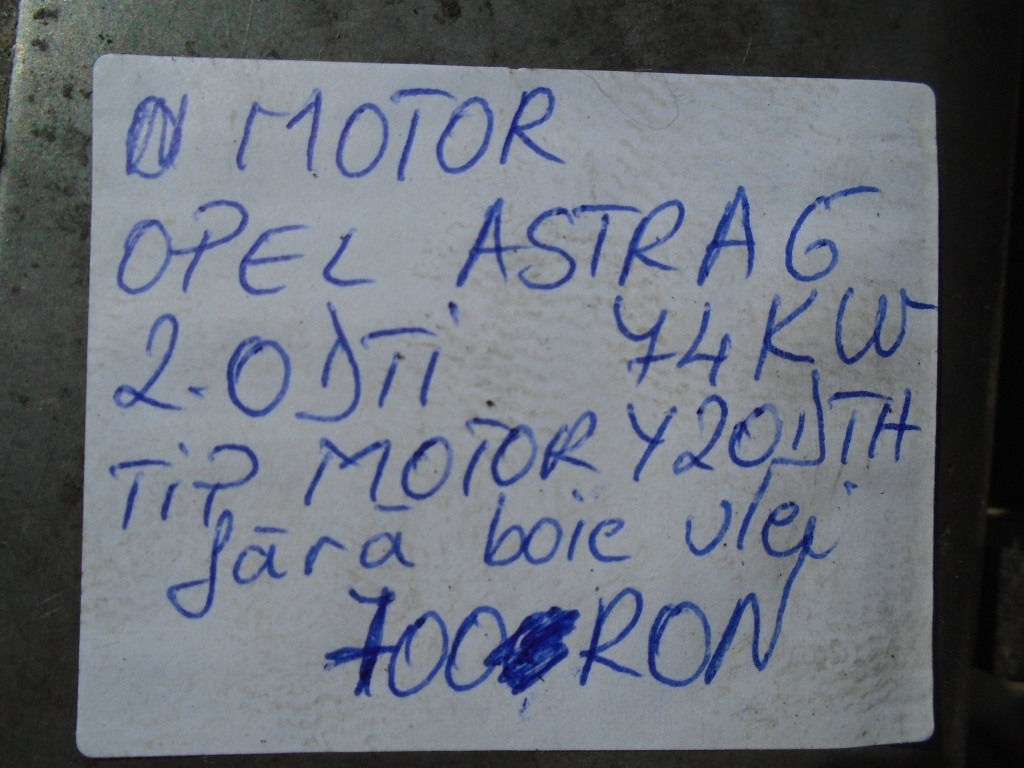 MOTOR
OPEL ASTRA G
2.0 DTi 74KW
TiP MOTOR Y20DTH
fără boie ulei
700 RON